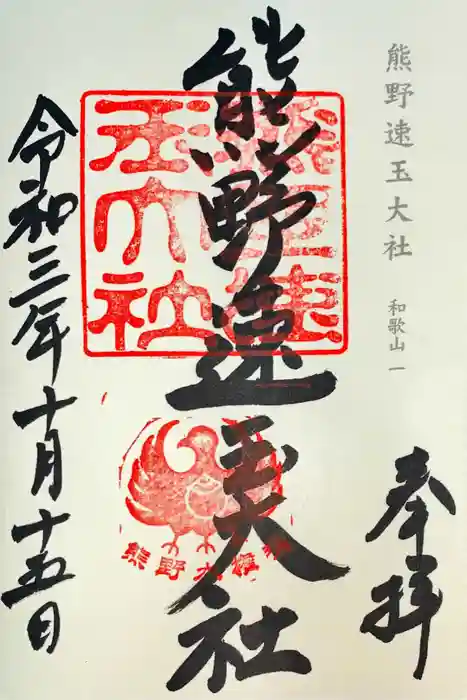 熊野速玉大社
和歌山一
奉拝
熊野速玉大社
熊野速玉大社
熊野大権現
令和三年十月十五日